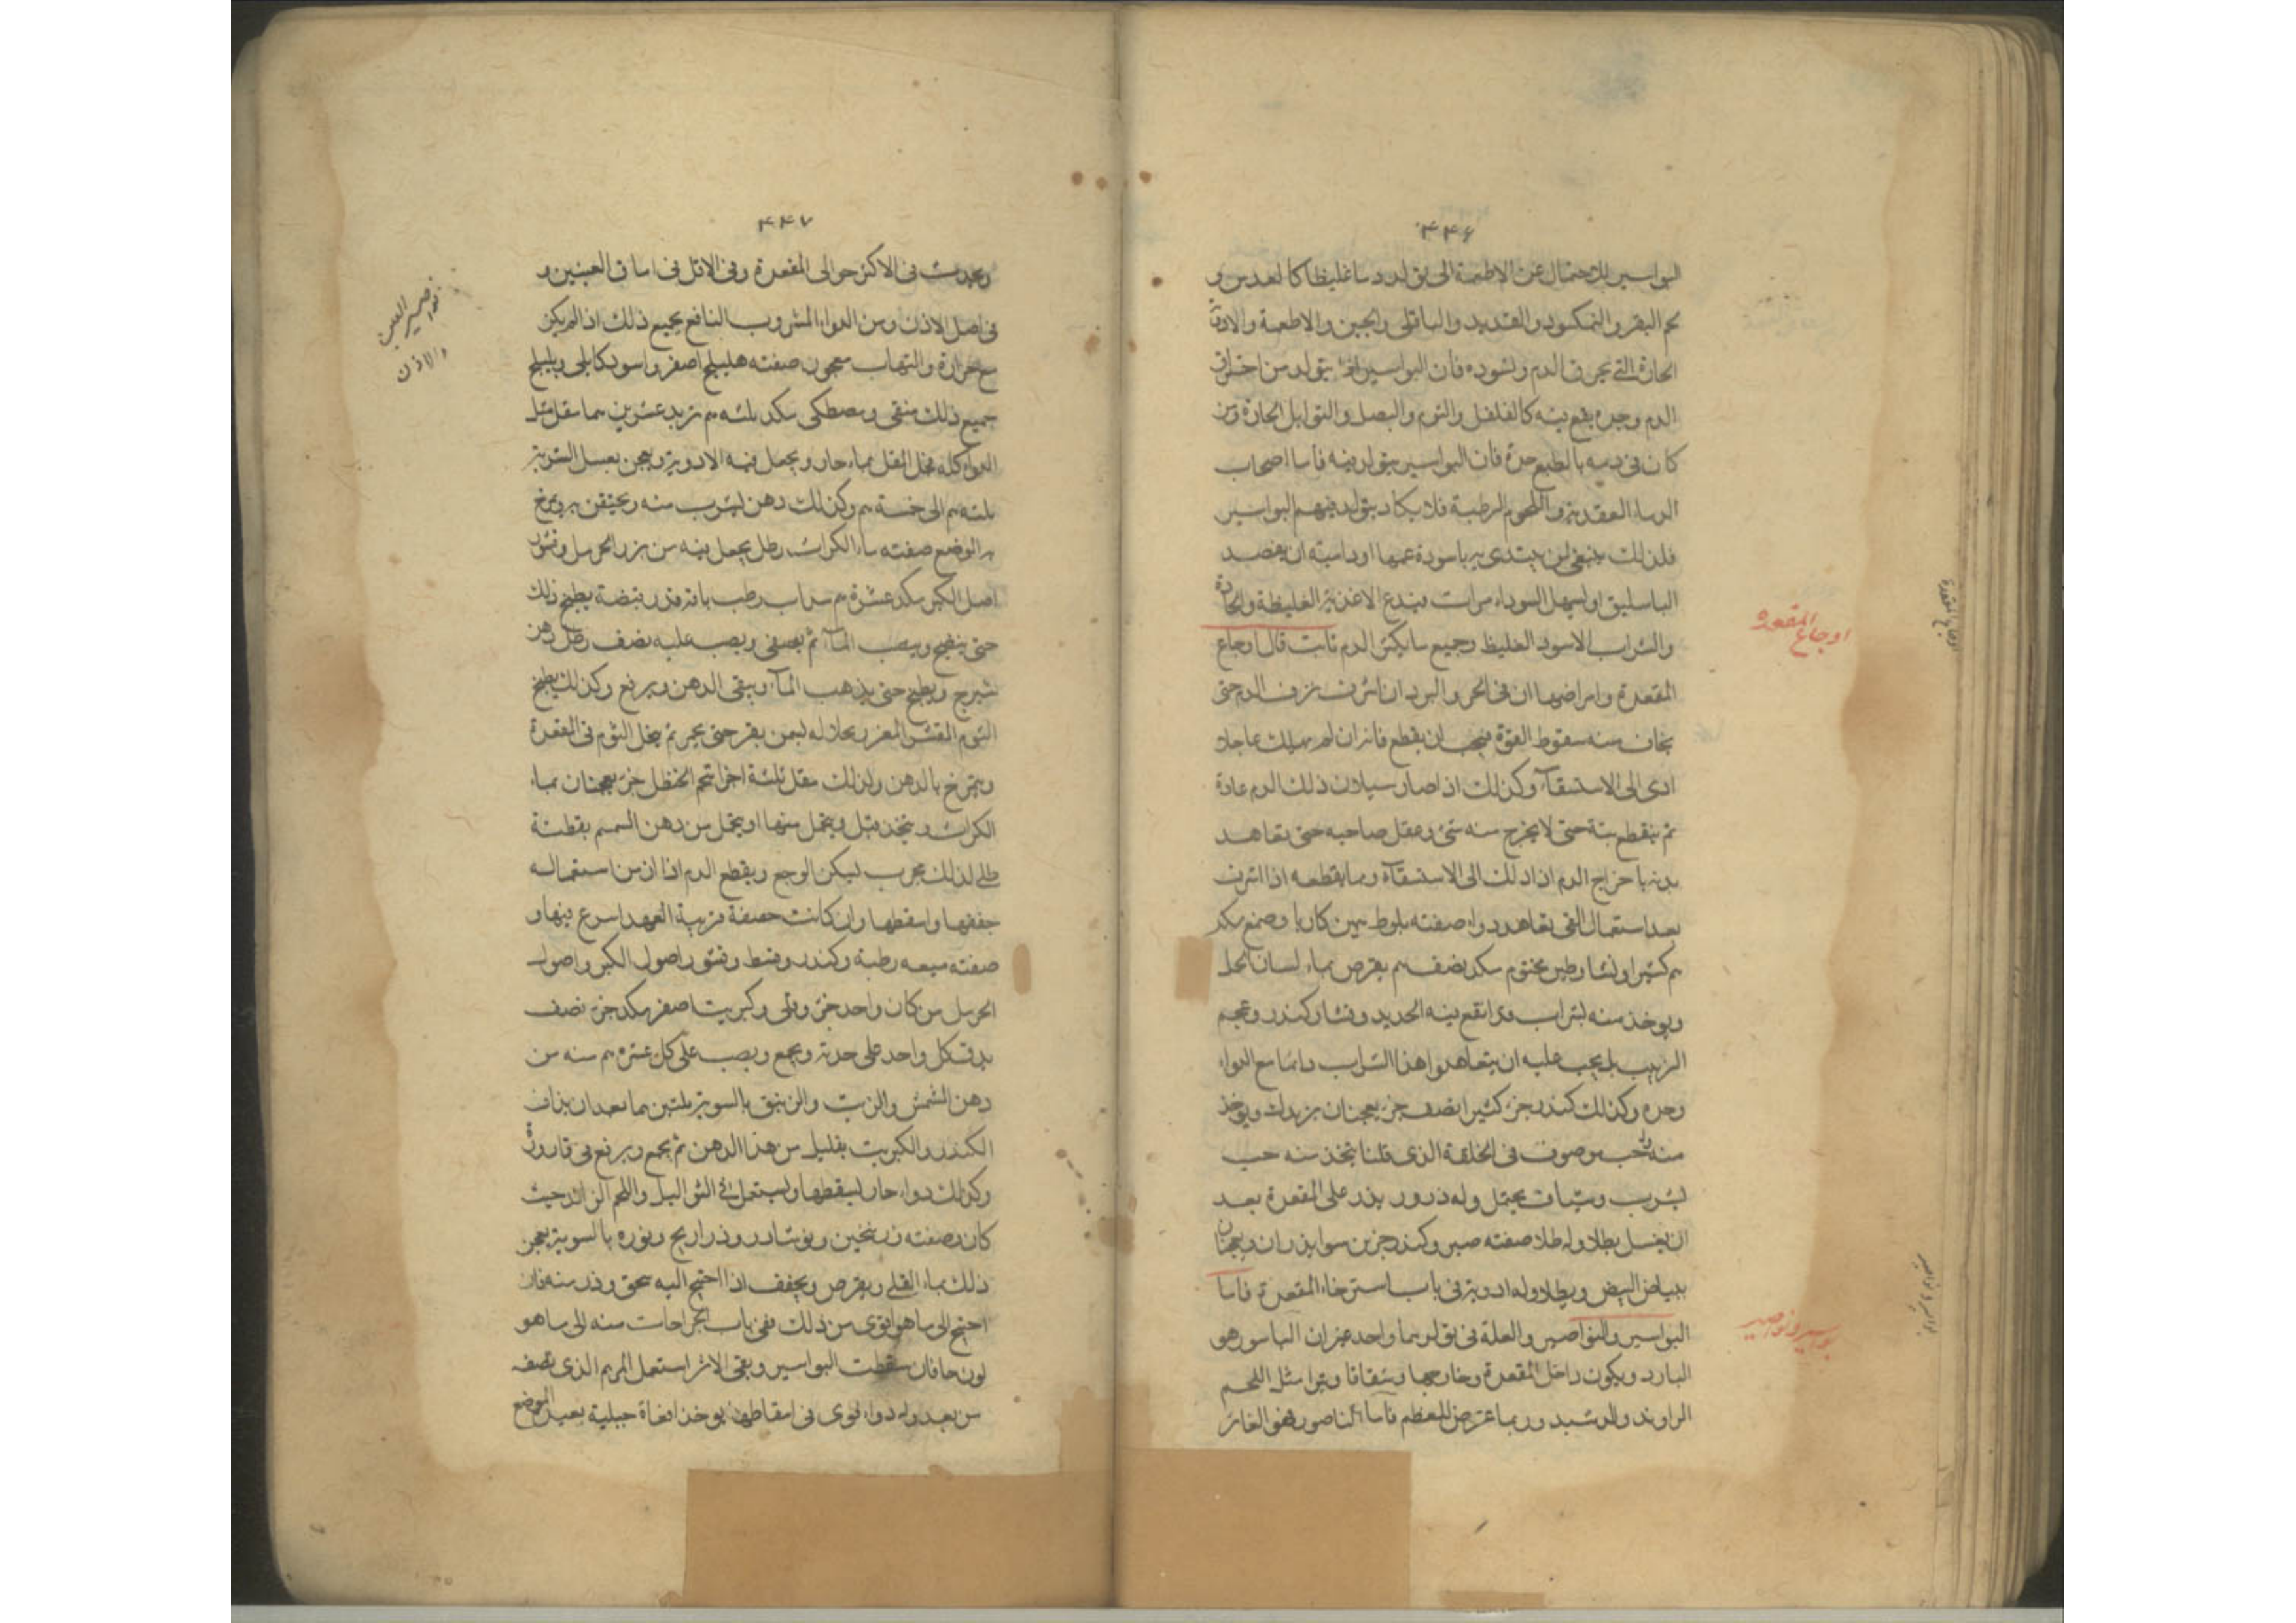 ۴۴۶
البواسير للاحتمال عن الاطعمة التى تولد دما غليظا كالعدس و
لحم البقر والنمكسود والقديد والباقلى والجبن والاطعمة والادوية
الحارة التى تحرق الدم وتسوده فان البواسير انما يتولد من احتراق
الدم وحدة يقع فيه كالفلفل والثوم والبصل والتوابل الحارة ومن
كان فى دمه بالطبع حدة فان البواسير يتولد فيه فاما اصحاب
الدماء العقدية واللحوم الرطبة فلا يكاد يتولد فيهم البواسير
فلذلك ينبغى لمن يبتدى به باسورة عميا او دامية ان يفصد
الباسليق او يسهل السوداء مرات ويدع الاغذية الغليظة والحارة
والشراب الاسود الغليظ وجميع ما يكثر الدم ثابت قال اوجاع
المقعدة وامراضها ان فى الحر والبرد ان اشرف نزف الدم حتى
يخاف منه سقوط القوة فيجب ان يقطع فانه ان لم يهلك عاجلا
ادى الى الاستسقاء وكذلك اذا صار سيلان ذلك الدم عادة
ثم ينقطع بتة حتى لا يخرج منه شئ وغفل صاحبه حتى تعاهد
بدنه باخراج الدم اذا ذلك الى الاستسقاء ومما يقطعه اذا اشرف
بعد استعمال القى تعاهد دواء صفته بلوط ثمين كاربا وصمغ مكد
م كثيرا ونشا وطين مختوم مكد نصف م يقرص بماء لسان الحمل
ويوخذ منه بشراب قد انقع فيه الحديد وقشار كندر وعجم
الزبيب بل يجب عليه ان يتعاهدوا هذا الشراب دائما مع الدواء
وحده وكذلك كندر جزء كثيرا نصف جزء يعجنان بزبد ويوخذ
منه وله حب موصوف فى الخلفة الذى قلنا يتخذ منه حب
يشرب وشياف يحتمل وله ذرور يذر على المقعدة بعد
ان يغسل بطلا وله طلا صفته صبر وكندر جزين سوا يذران ويعجنان
ببياض البيض ويطلا وله ادوية فى باب استرخاء المقعدة فاما
البواسير والنواصير والعلة فى تولدهما واحد غير ان الباسور هو
البارد ويكون داخل المقعدة وخارجها وشقاقا وتيرا مثل اللحم
الراوند والرشيد وربما عترض للعظم فاما الناصور فهو الغائر
اوجاع المقعدة
بواسير ونواصير
۴۴۷
ويحدث فى الاكثر حوالى المقعدة وفى الاقل فى اماق العينين و
فى اصل الاذن ومن الدواء المشروب النافع لجميع ذلك اذا لم يكن
مع حرارة والتهاب معجون صفته هليلج اصفر واسود كابلى وبليلج
جميع ذلك منقى ومصطكى مكد ثلثه م تربد عشرين م مقل مثل
الدواء كله يحل المقل بماء حار ويجعل فيه الادوية ويعجن بعسل الشربة
ثلثه م الى خمسة م وكذلك دهن يشرب منه ويحتقن به ويمرخ
به الموضع صفته ماء الكراث رطل يجعل فيه من بزر الحرمل وقشور
اصل الكبر مكد عشرة م سداب رطب باقة قدر قبضة يطبخ ذلك
حتى ينضج ويصب الماء ثم يصفى ويصب عليه نصف رطل دهن
شيرج ويطبخ حتى يذهب الماء ويبقى الدهن ويرفع وكذلك يطبخ
الثوم المقشر المغزر بحلاله بسمن بقر حتى يحمر ثم يدخل الثوم فى المقعدة
ويتمرخ بالدهن ولذلك مقل ثلثة اجزا شحم الحنظل جزء يعجنان بماء
الكراث ويتخذ فتل ويتحمل منها او يتحمل من دهن السمسم بقطنة
طلى لذلك مجرب ليسكن الوجع ويقطع الدم اذا ادمن استعماله
جففها واسقطها وان كانت ضعيفة قريبة العهد اسرع فيها و
صفته ميعه رطبة وكندر وقسط وقشور اصول الكبر واصول
الحرمل من كان واحد جزء وقلى وكبريت اصفر مكد جزء نصف
يدق كل واحد على حدته ويجمع ويصب على كل عشره م منه من
دهن المشمش والزيت والزنبق بالسوية ثلثين م بعد ان يذاف
الكندر والكبريت بقليل من هذا الدهن ثم يجمع ويرفع فى قارورة
وكذلك دواء حار ليسقطها ويستعمل فى الثواليل واللحم الزائد حيث
كان وصفته زرنيخين ونوشادر وذراريح ونوره بالسوية يعجن
ذلك بماء القلى ويقرص ويجفف اذا احتيج اليه سحق وذر منه فان
احتيج الى ما هو اقوى من ذلك ففى باب الجراحات منه الى ما هو
لون حافان سقطت البواسير وبقى الاثر استعمل المرهم الذى نصف
من بعد وله دواء قوى فى اسقاطها يوخذ افعاة جبلية بعيد الموضع
نواصير العين
والاذن